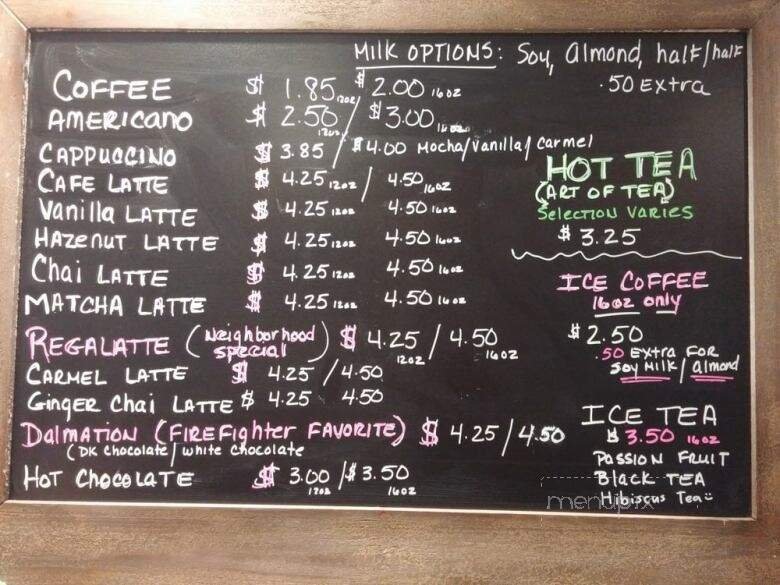 MILK OPTIONS: Soy, Almond, half/half
.50 Extra
COFFEE $ 1.85 12oz $ 2.00 16oz
AMERICANO $ 2.50 12oz / $ 3.00 16oz
CAPPUCCINO $ 3.85 / $ 4.00 Mocha/Vanilla/Carmel
CAFE LATTE $ 4.25 12oz / 4.50 16oz
Vanilla LATTE $ 4.25 12oz 4.50 16oz
HAZENUT LATTE $ 4.25 12oz 4.50 16oz
Chai LATTE $ 4.25 12oz 4.50 16oz
MATCHA LATTE $ 4.25 12oz 4.50 16oz
REGALATTE (Neighborhood special) $ 4.25 12oz / 4.50 16oz
CARMEL LATTE $ 4.25 / 4.50
Ginger Chai LATTE $ 4.25 4.50
DALMATION (FIREFighter FAVORITE) $ 4.25 / 4.50
(DK chocolate/white chocolate
HOT CHOCOLATE $ 3.00 12oz / $ 3.50 16oz
HOT TEA
(ART OF TEA)
SELECTION VARIES
$ 3.25
ICE COFFEE
16oz only
$ 2.50
.50 Extra FOR
Soy Milk / almond
ICE TEA
$ 3.50 16oz
PASSION FRUIT
BLACK TEA
Hibiscus Tea
menupix